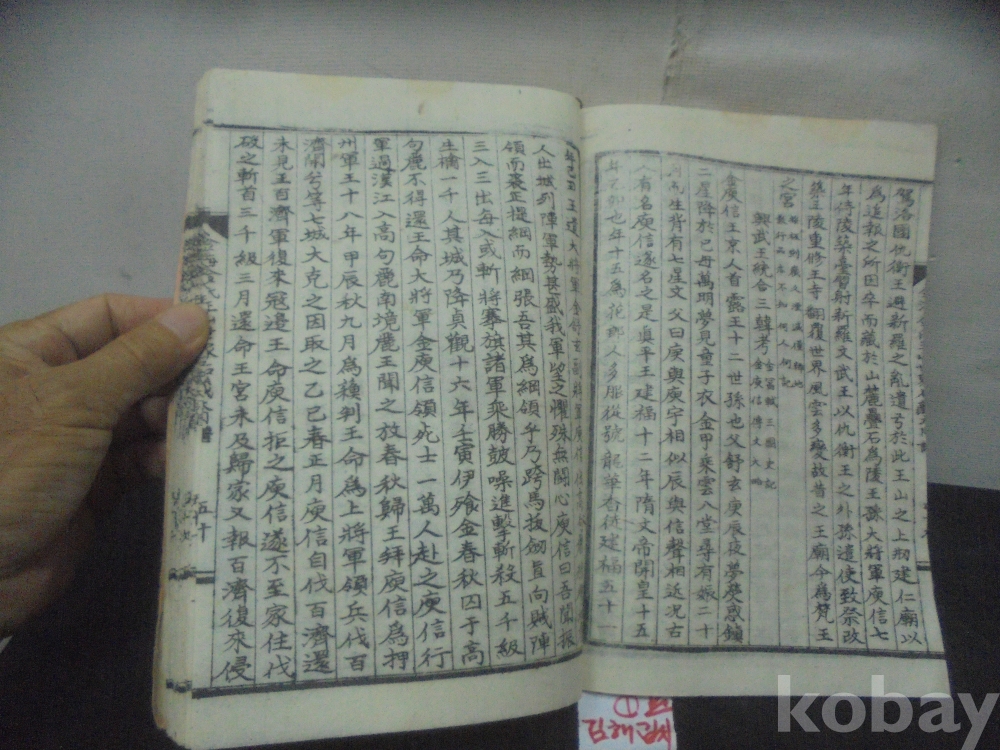 駕洛國仇衡王避新羅之亂遺弓於此王山之上刱建仁廟以
爲追報之所因卒而藏於山麓疊石爲陵王孫大將軍庾信七
年侍陵築臺習射新羅文武王以仇衡王之外孫遣使致祭改
築王陵重修王寺翻覆世界風雲多變故昔之王廟今爲梵王
之宮
興武王統合三韓考
金庾信王京人首露王十二世孫也父舒玄庚辰夜夢熒惑鎮
二星降於己母萬明夢見童子衣金甲乘雲入堂尋有娠二十
月而生背有七星文父曰庚與庾字相似辰與信聲相近况古
人有名庾信遂名之是眞平王建福十二年隋文帝開皇十五
年乙卯也年十五爲花郞人多服從號龍華香徒建福五十一
人出城列陣軍勢甚盛我軍望之懼殊無鬪心庾信曰吾聞振
領而裘正提綱而網張吾其爲綱領乎乃跨馬拔劒直向賊陣
三入三出每入或斬將搴旗諸軍乘勝鼓噪進擊斬殺五千級
生擒一千人其城乃降貞觀十六年壬寅伊飱金春秋囚于高
句麗不得還王命大將軍金庾信領死士一萬人赴之庾信行
軍過漢江入高句麗南境麗王聞之放春秋歸王拜庾信爲押
州軍王十八年甲辰秋九月爲蘓判王命爲上將軍領兵伐百
濟閑兮等七城大克之因取之乙巳春正月庾信自伐百濟還
未見王百濟軍復來寇邊王命庾信拒之庾信遂不至家往伐
破之斬首三千級三月還命王宮未及歸家又報百濟復來侵
五十
①
김해김씨
kobay